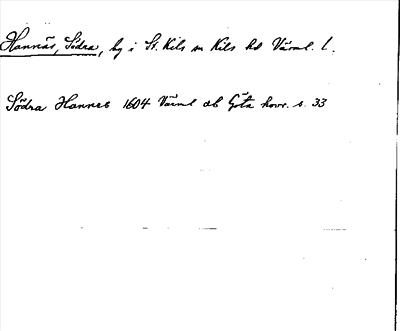 Hannäs, Södra, by i St. Kils sn Kils hd Värml. l.
Södra Hannes 1604 Värml ab Göta hovr. s. 33